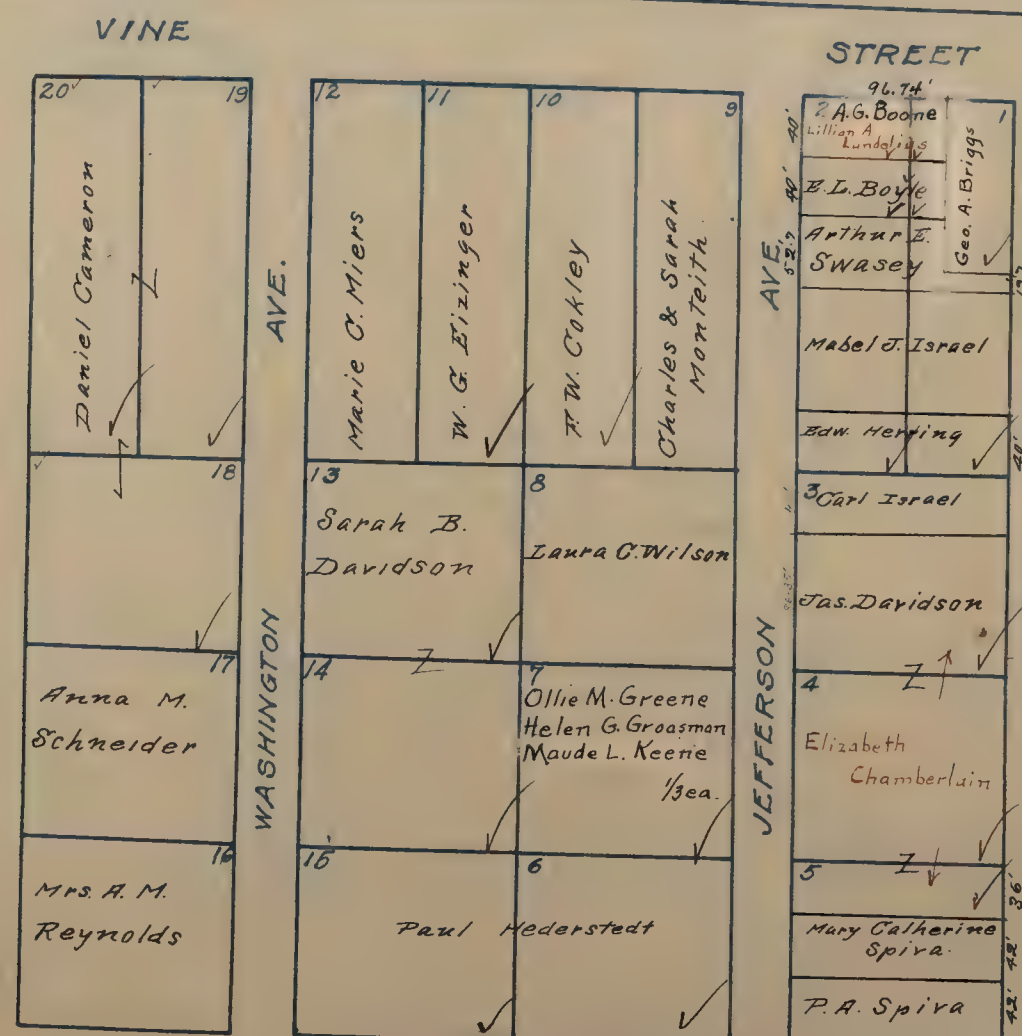 VINE
STREET
20
19
Daniel Cameron
18
17
Anna M.
Schneider
16
Mrs. A. M.
Reynolds
WASHINGTON
AVE.
12
11
10
9
Marie C. Miers
W. G. Eizinger
F. W. Cokley
Charles & Sarah
Monteith
13
Sarah B.
Davidson
8
Laura C. Wilson
14
7
Ollie M. Greene
Helen G. Groasman
Maude L. Keene
1/3 ea.
15
6
Paul Hederstedt
JEFFERSON
AVE.
96.74'
2
A.G. Boone
1
Lillian A
Lundelius
40'
E.L. Boyle
40'
Arthur E.
Swasey
52.7
Geo. A. Briggs
Mabel J. Israel
Edw. Herring
40'
3
Carl Israel
Jas. Davidson
4
Elizabeth
Chamberlain
5
36'
Mary Catherine
Spiva
42'
P. A. Spiva
42'